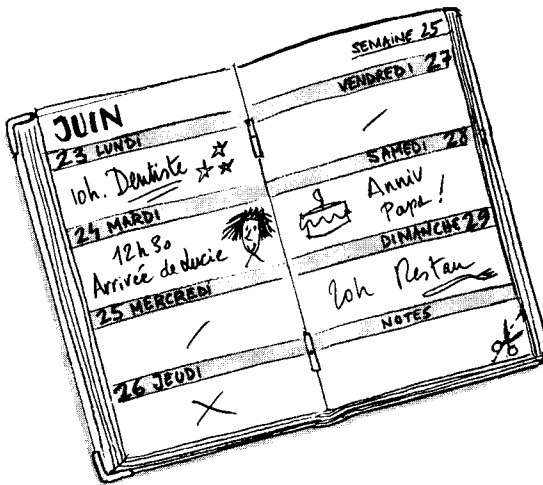 JUIN
23 LUNDI
10h. Dentiste
24 MARDI
12h30
Arrivée de Lucie
25 MERCREDI
26 JEUDI
SEMAINE 25
VENDREDI 27
SAMEDI 28
Anniv
Papa!
DIMANCHE 29
20h Restau
NOTES